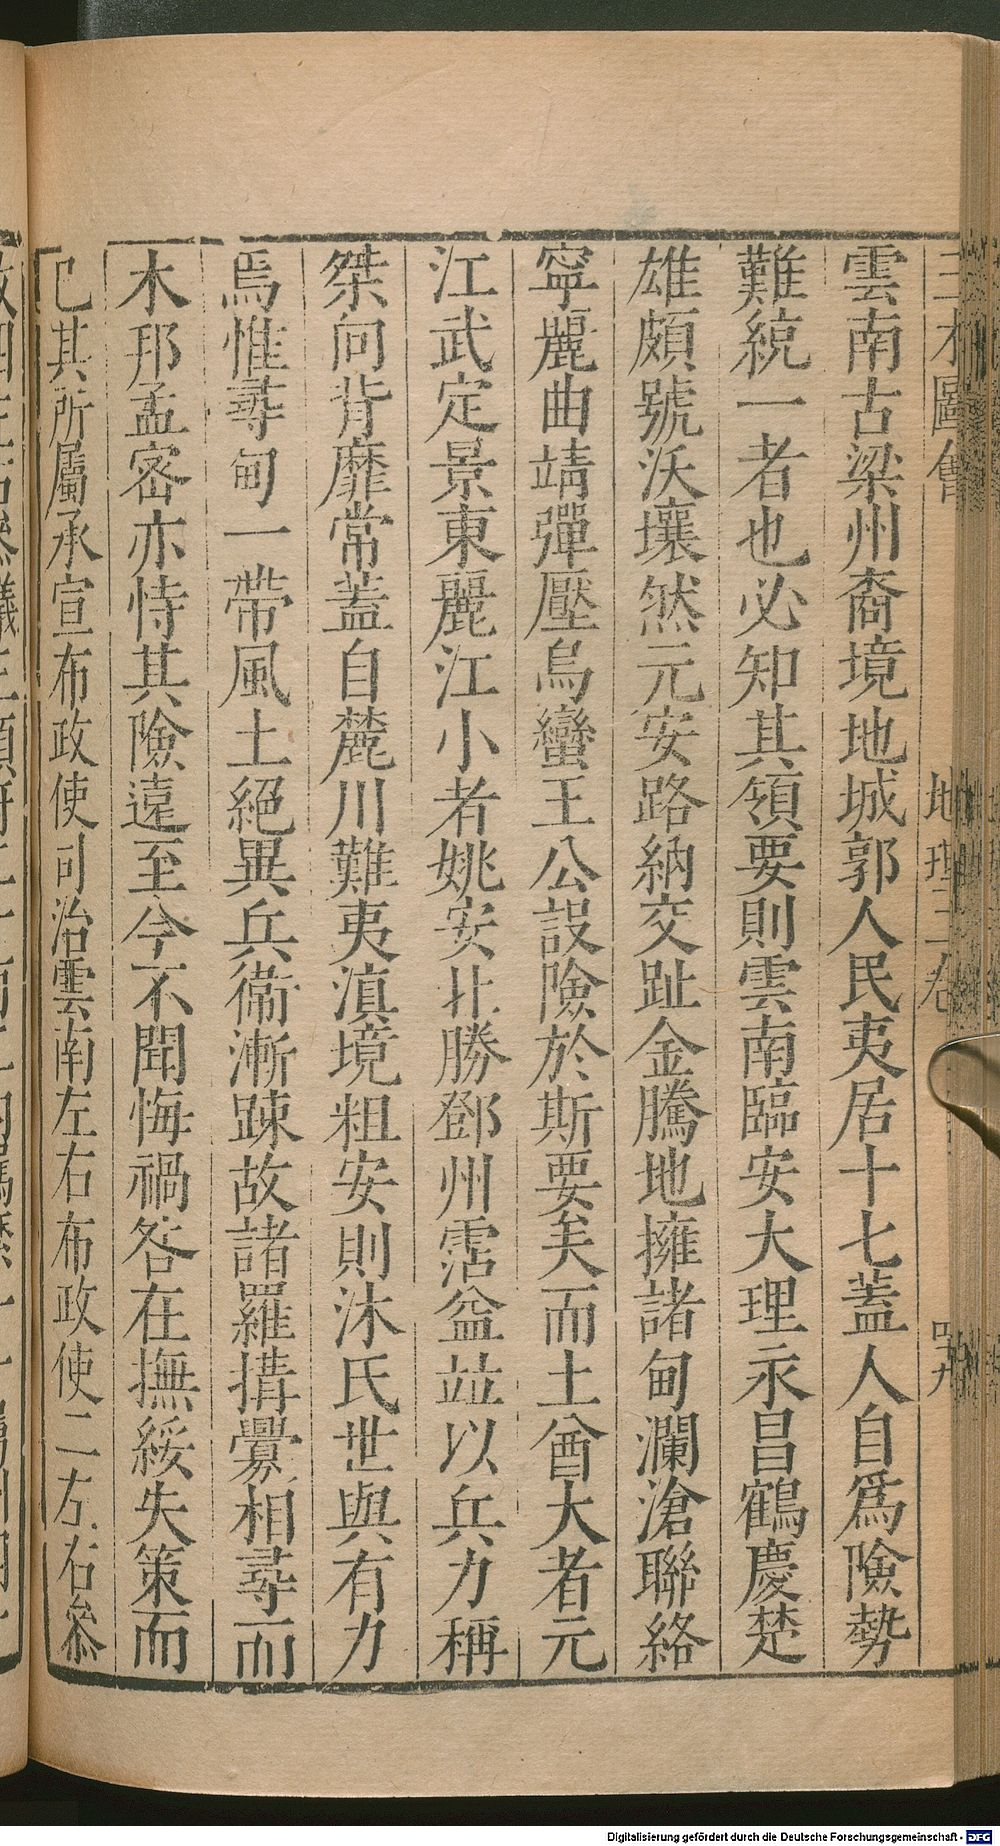 三才圖會 地理三卷
雲南古梁州裔境地城郭人民夷居十七蓋人自爲險勢
難統一者也必知其領要則雲南臨安大理永昌鶴慶楚
雄頗號沃壤然元安路納交趾金騰地擁諸甸瀾滄聯絡
寧麗曲靖彈壓烏蠻王公設險於斯要矣而土酋大者元
江武定景東麗江小者姚安北勝鄧州霑益並以兵力稱
桀向背靡常蓋自麓川難夷滇境粗安則沐氏世與有力
焉惟尋甸一帶風土絕異兵衛漸疎故諸羅搆釁相尋而
木邦孟密亦恃其險遠至今不聞悔禍咎在撫綏失策而
已其所屬承宣布政使司治雲南左右布政使二左右參
Digitalisierung gefördert durch die Deutsche Forschungsgemeinschaft - DFG